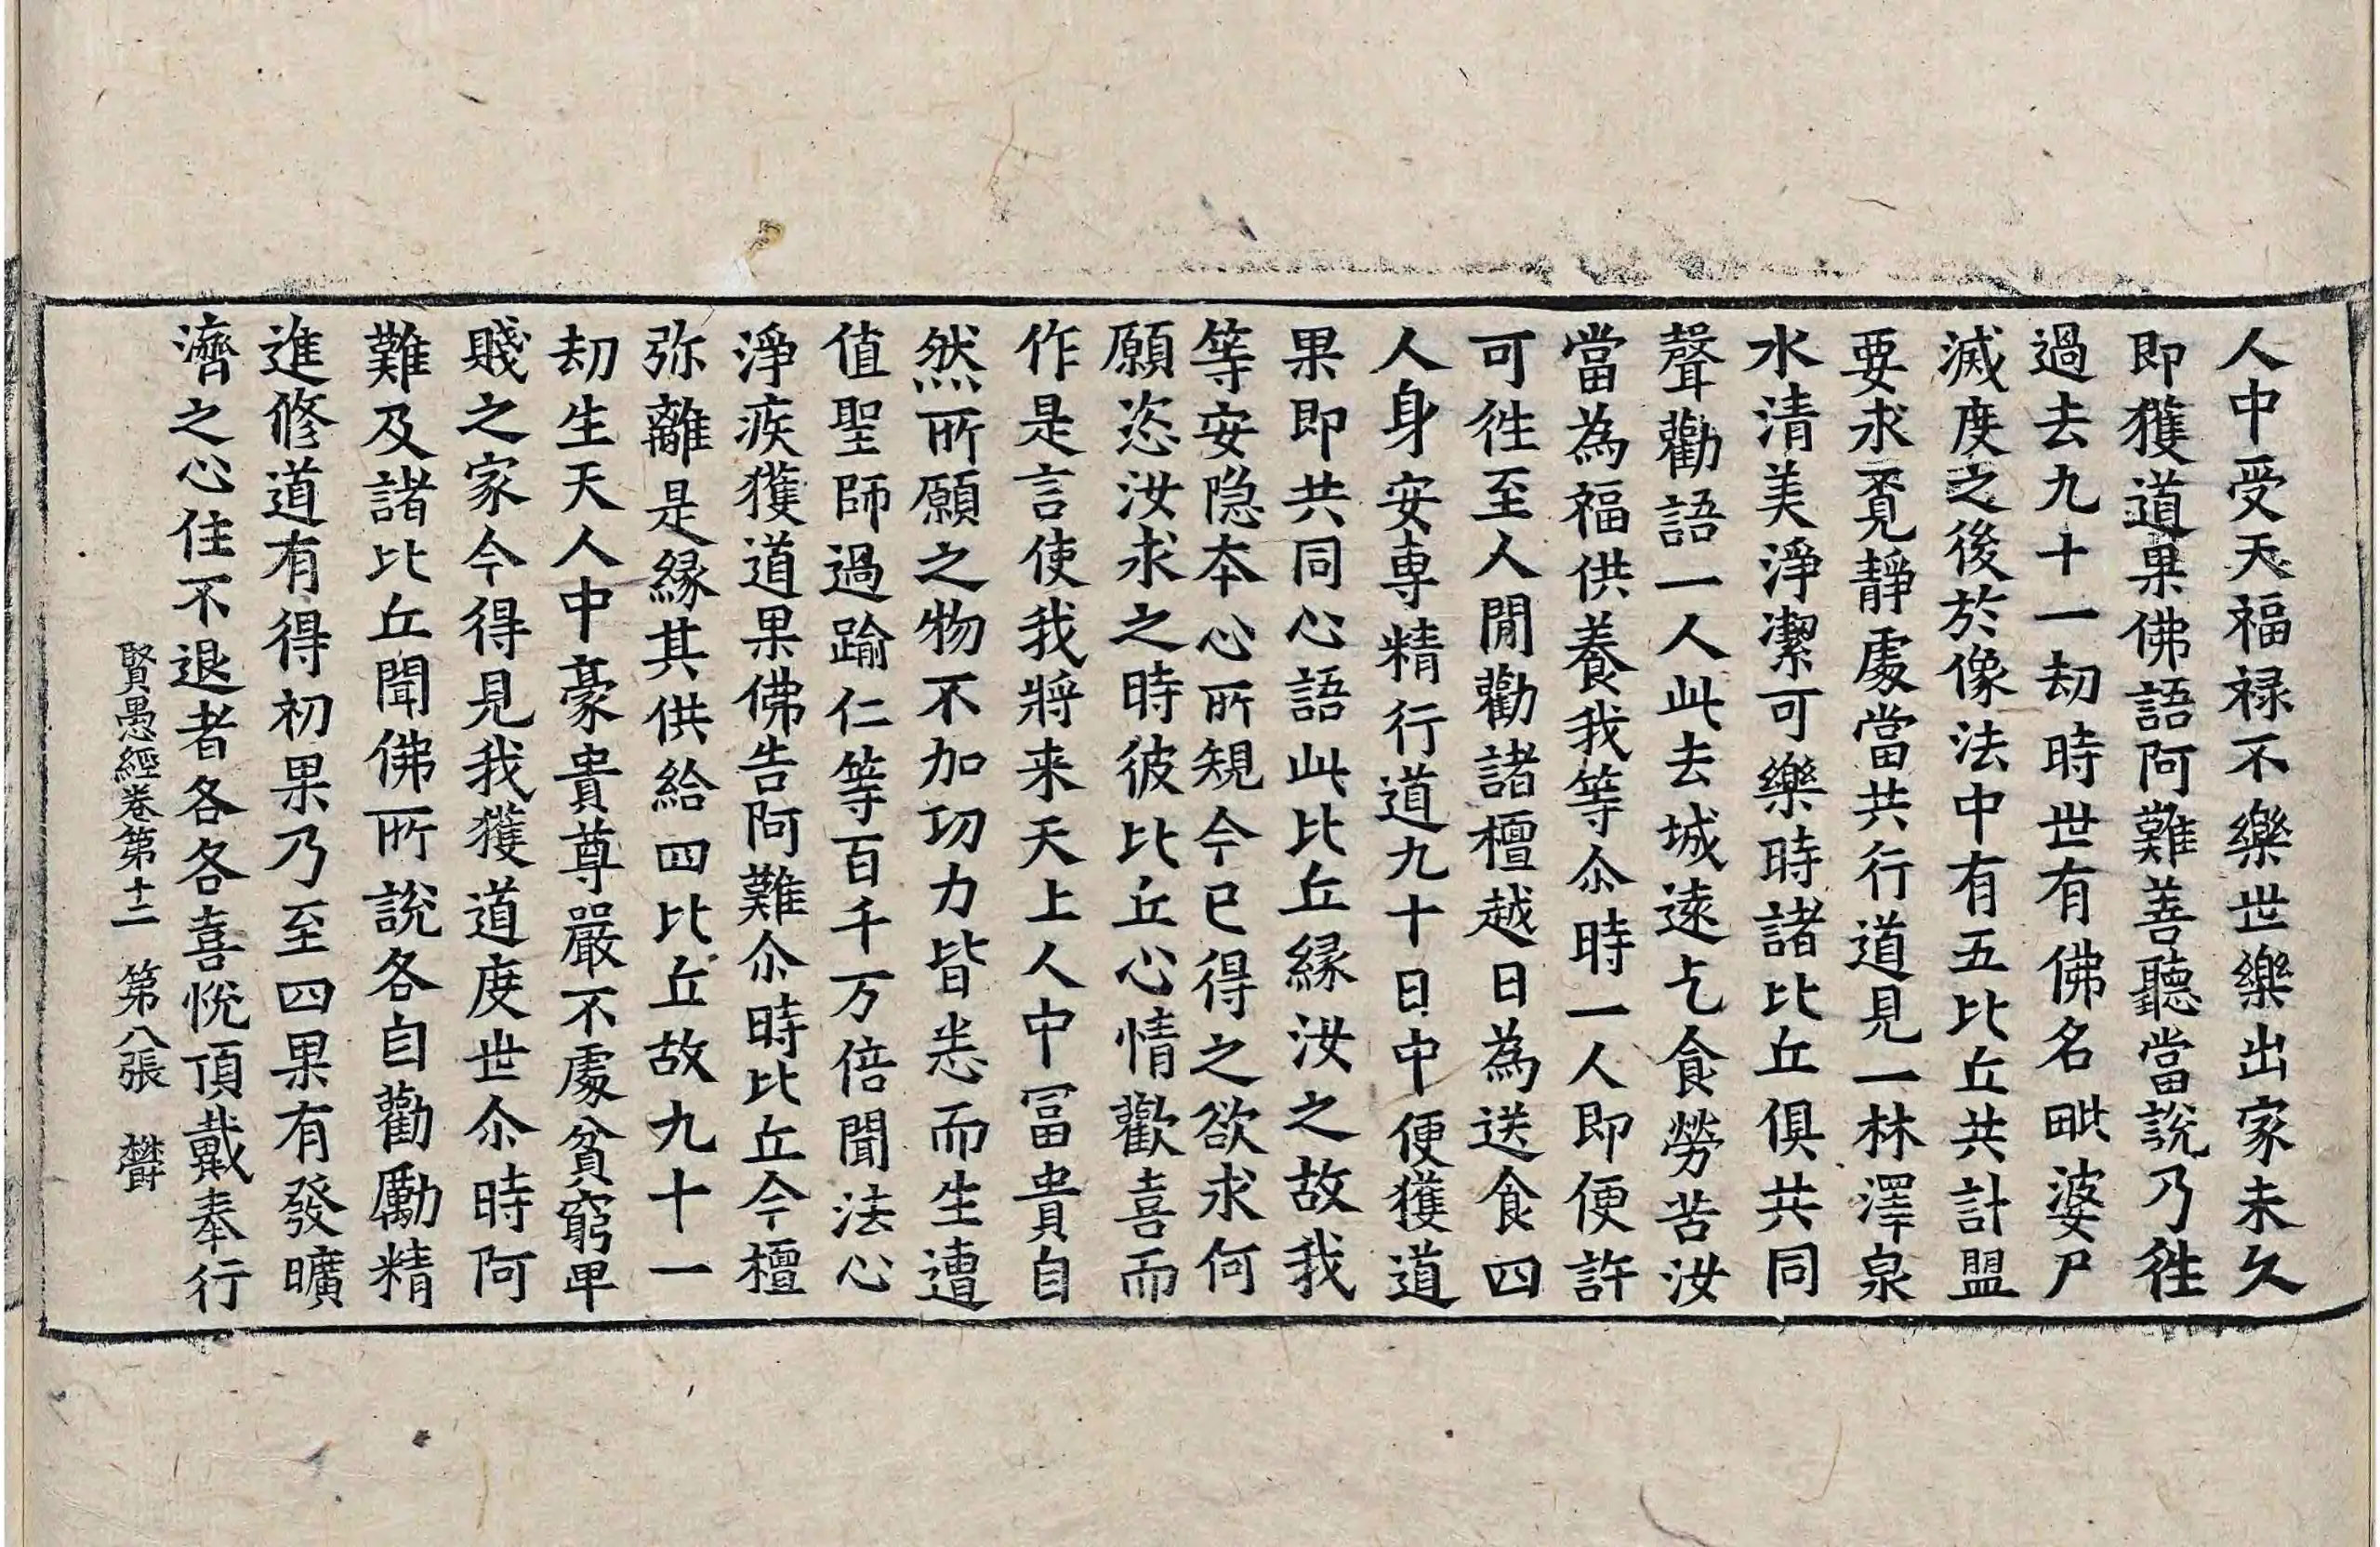 人中受天福禄不樂世樂出家未久
即獲道果佛語阿難善聽當說乃徃
過去九十一劫時世有佛名毗婆尸
滅度之後於像法中有五比丘共計盟
要求覔靜處當共行道見一林澤泉
水清美淨潔可樂時諸比丘俱共同
聲勸語一人此去城遠乞食勞苦汝
當為福供養我等尒時一人即便許
可徃至人閒勸諸檀越日為送食四
人身安專精行道九十日中便獲道
果即共同心語此比丘緣汝之故我
等安隐本心所䂓今已得之欲求何
願恣汝求之時彼比丘心情歡喜而
作是言使我將来天上人中冨貴自
然所願之物不加功力皆悉而生遭
值聖師過踰仁等百千万倍聞法心
淨疾獲道果佛告阿難尒時比丘今檀
弥離是緣其供給四比丘故九十一
劫生天人中豪貴尊嚴不處貧窮卑
賤之家今得見我獲道度世尒時阿
難及諸比丘聞佛所說各自勸勵精
進修道有得初果乃至四果有發曠
濟之心住不退者各各喜悅頂戴奉行
賢愚經卷第十二 第八張 欝